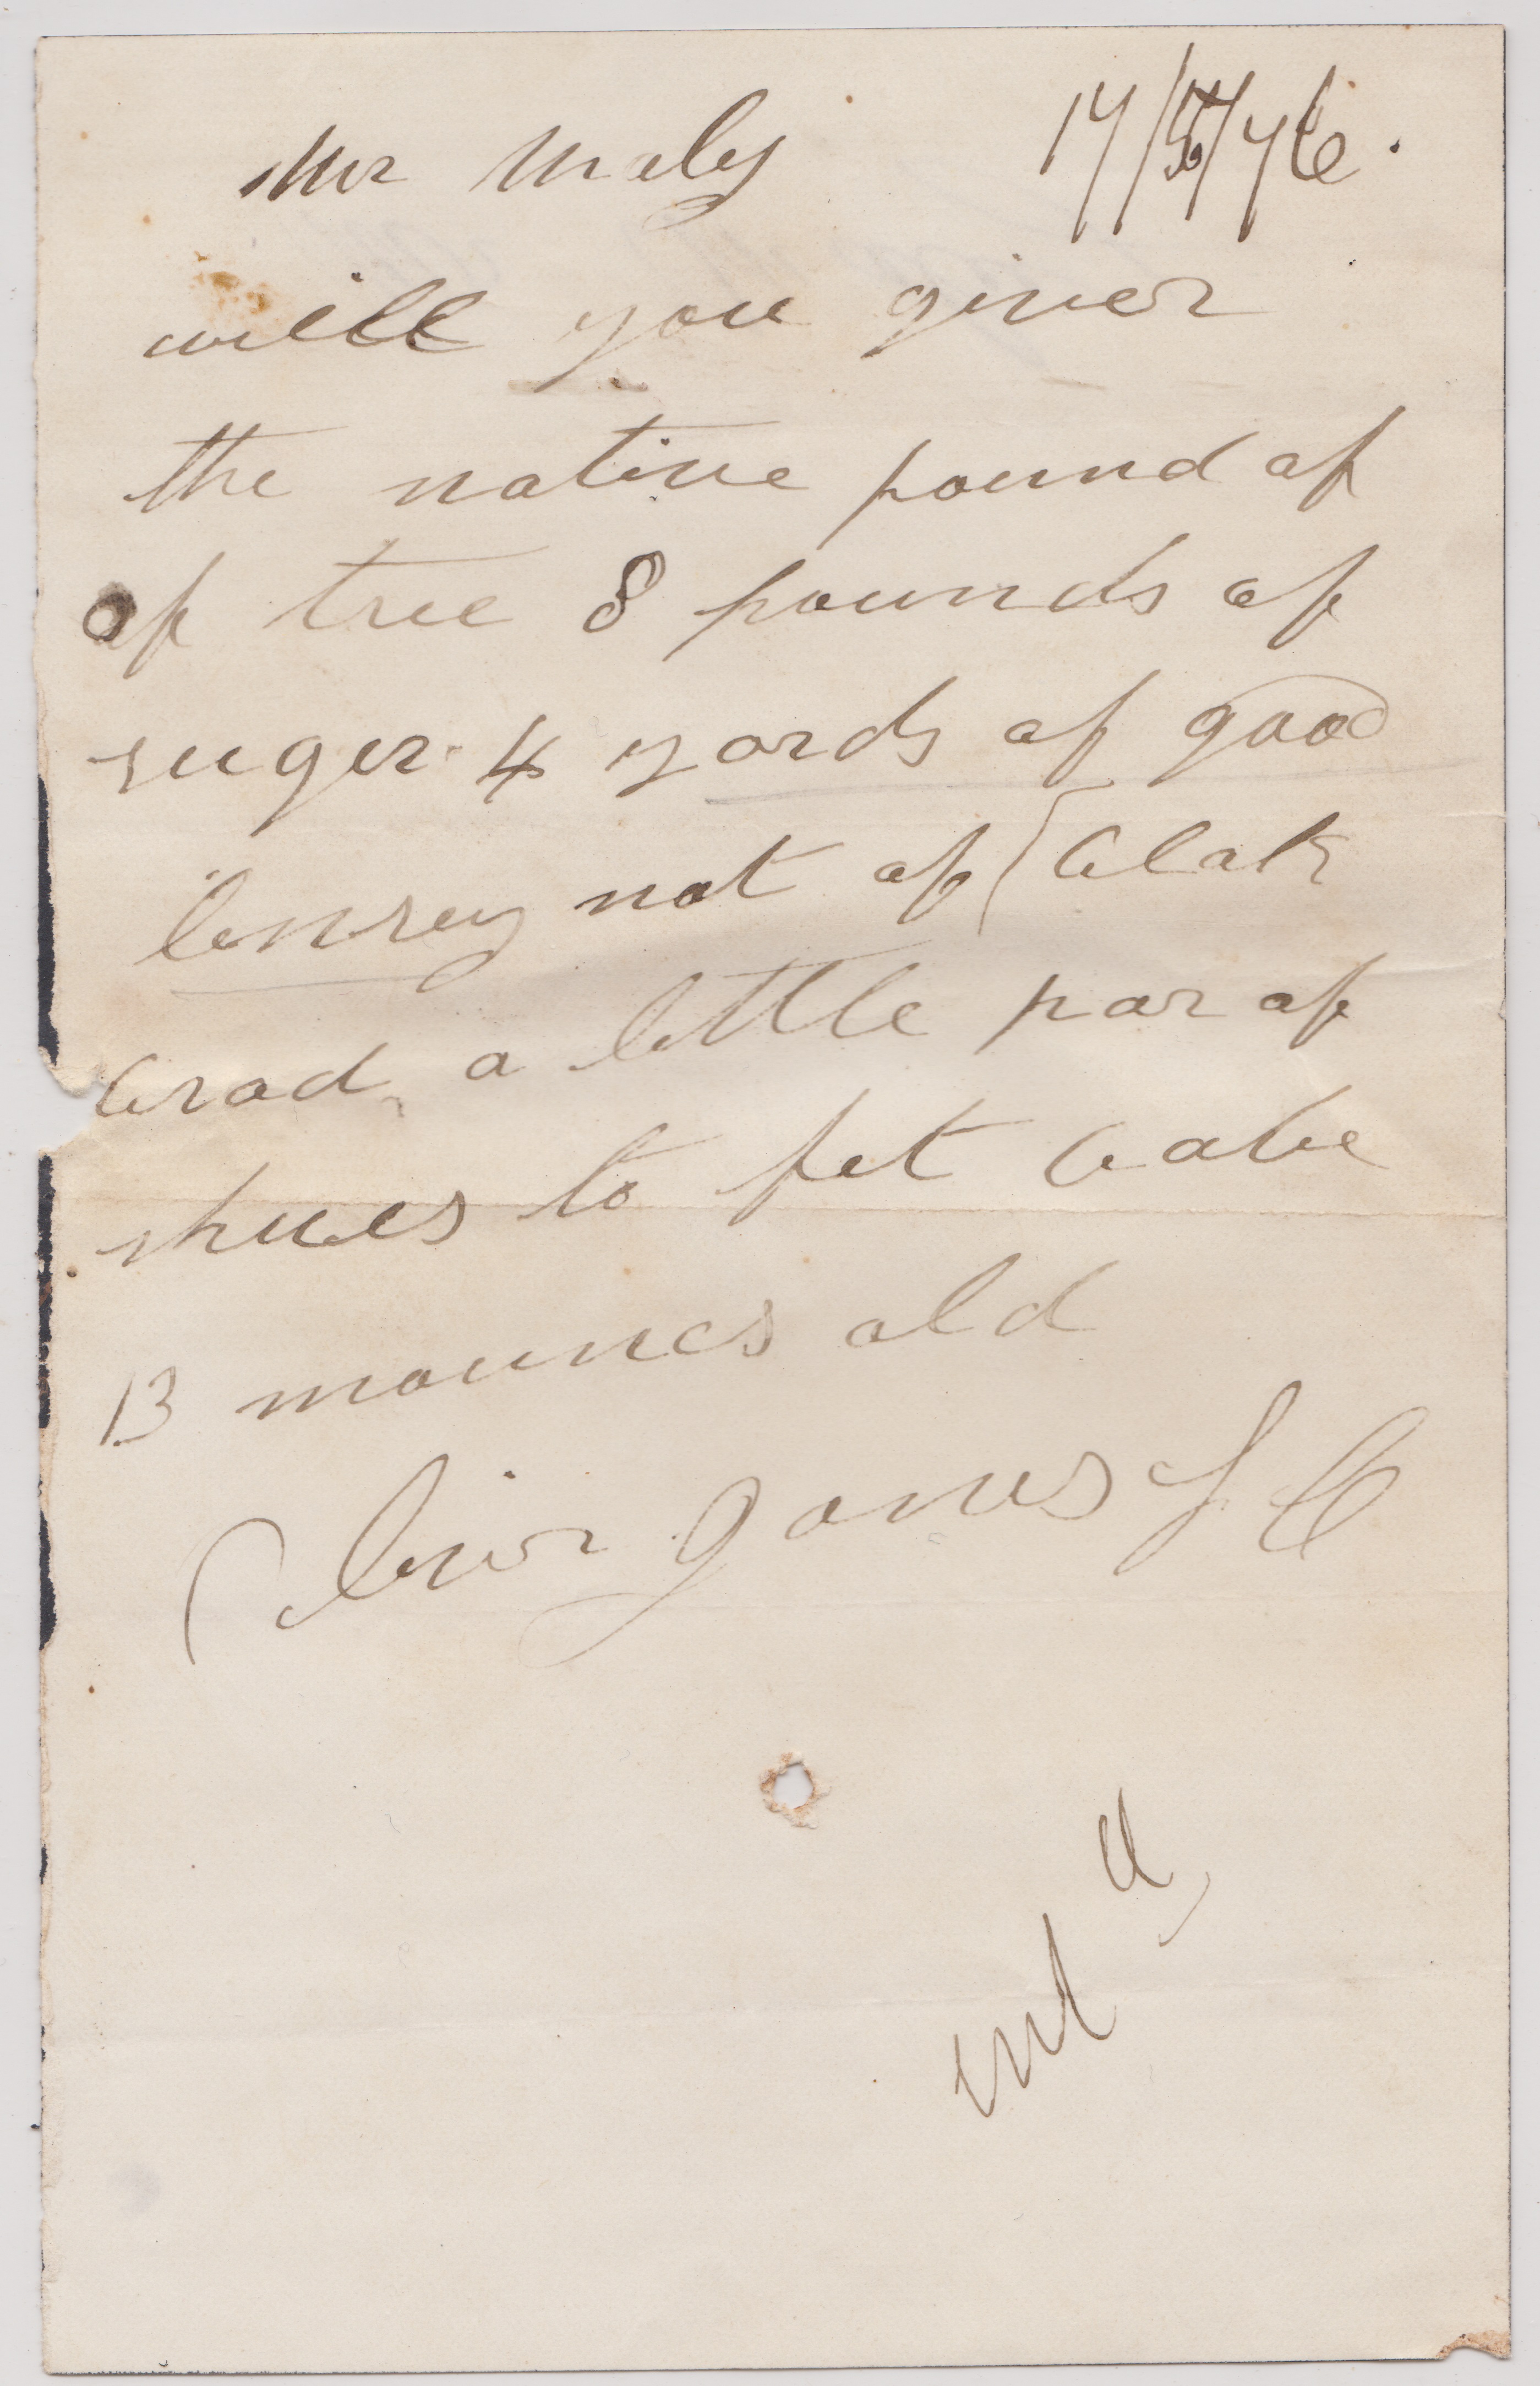 Mr Maley
will you giver
the native pound of
of tree 8 pounds of
suger 4 yards of good
lensey not of blak
brad a little par of
shues to fet babe
13 mounes old
James